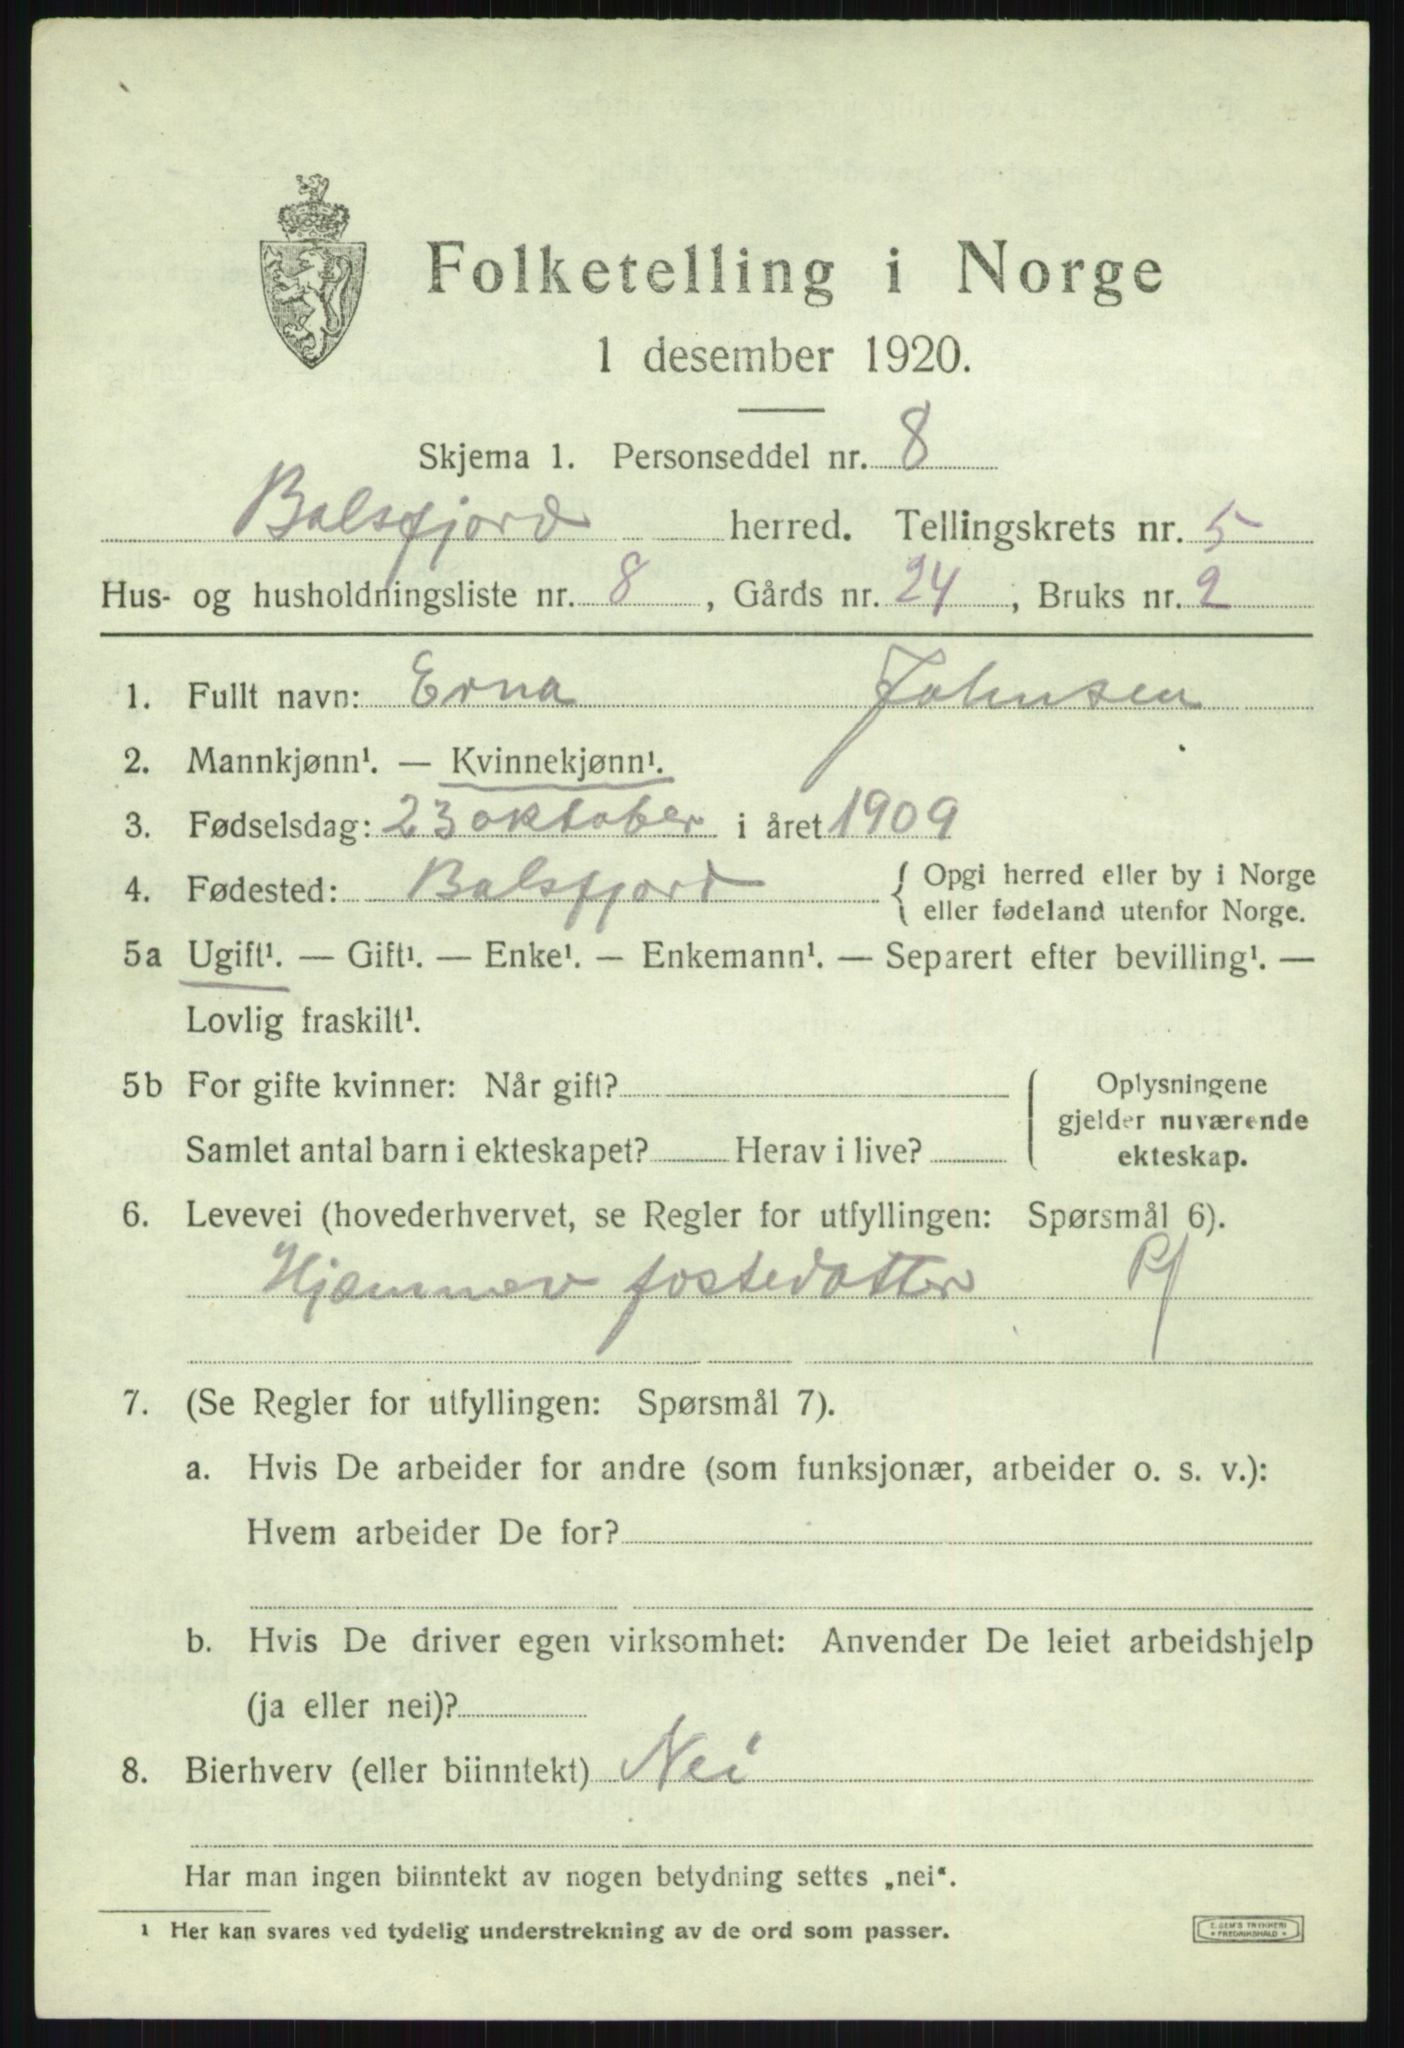 Folketelling i Norge
1 desember 1920.
Skjema 1. Personseddel nr. 8
Balsfjord herred. Tellingskrets nr. 5
Hus- og husholdningsliste nr. 8, Gårds nr. 24, Bruks nr. 2
1. Fullt navn: Erna Johnsen
2. Mannkjønn¹. — Kvinnekjønn¹.
3. Fødselsdag: 23 oktober i året 1909
4. Fødested: Balsfjord { Opgi herred eller by i Norge
eller fødeland utenfor Norge.
5a Ugift¹. — Gift¹. — Enke¹. — Enkemann¹. — Separert efter bevilling¹. —
Lovlig fraskilt¹.
5b For gifte kvinner: Når gift?
Samlet antal barn i ekteskapet? Herav i live?
Oplysningene
gjelder nuværende
ekteskap.
6. Levevei (hovederhvervet, se Regler for utfyllingen: Spørsmål 6).
Hjemmev fostedatter Pf
7. (Se Regler for utfyllingen: Spørsmål 7).
a. Hvis De arbeider for andre (som funksjonær, arbeider o. s. v.):
Hvem arbeider De for?
b. Hvis De driver egen virksomhet: Anvender De leiet arbeidshjelp
(ja eller nei)?
8. Bierhverv (eller biinntekt) Nei
Har man ingen biinntekt av nogen betydning settes „nei“.
¹ Her kan svares ved tydelig understrekning av de ord som passer.
E. SEM'S TRYKKERI
• FREDRIKSHALD •